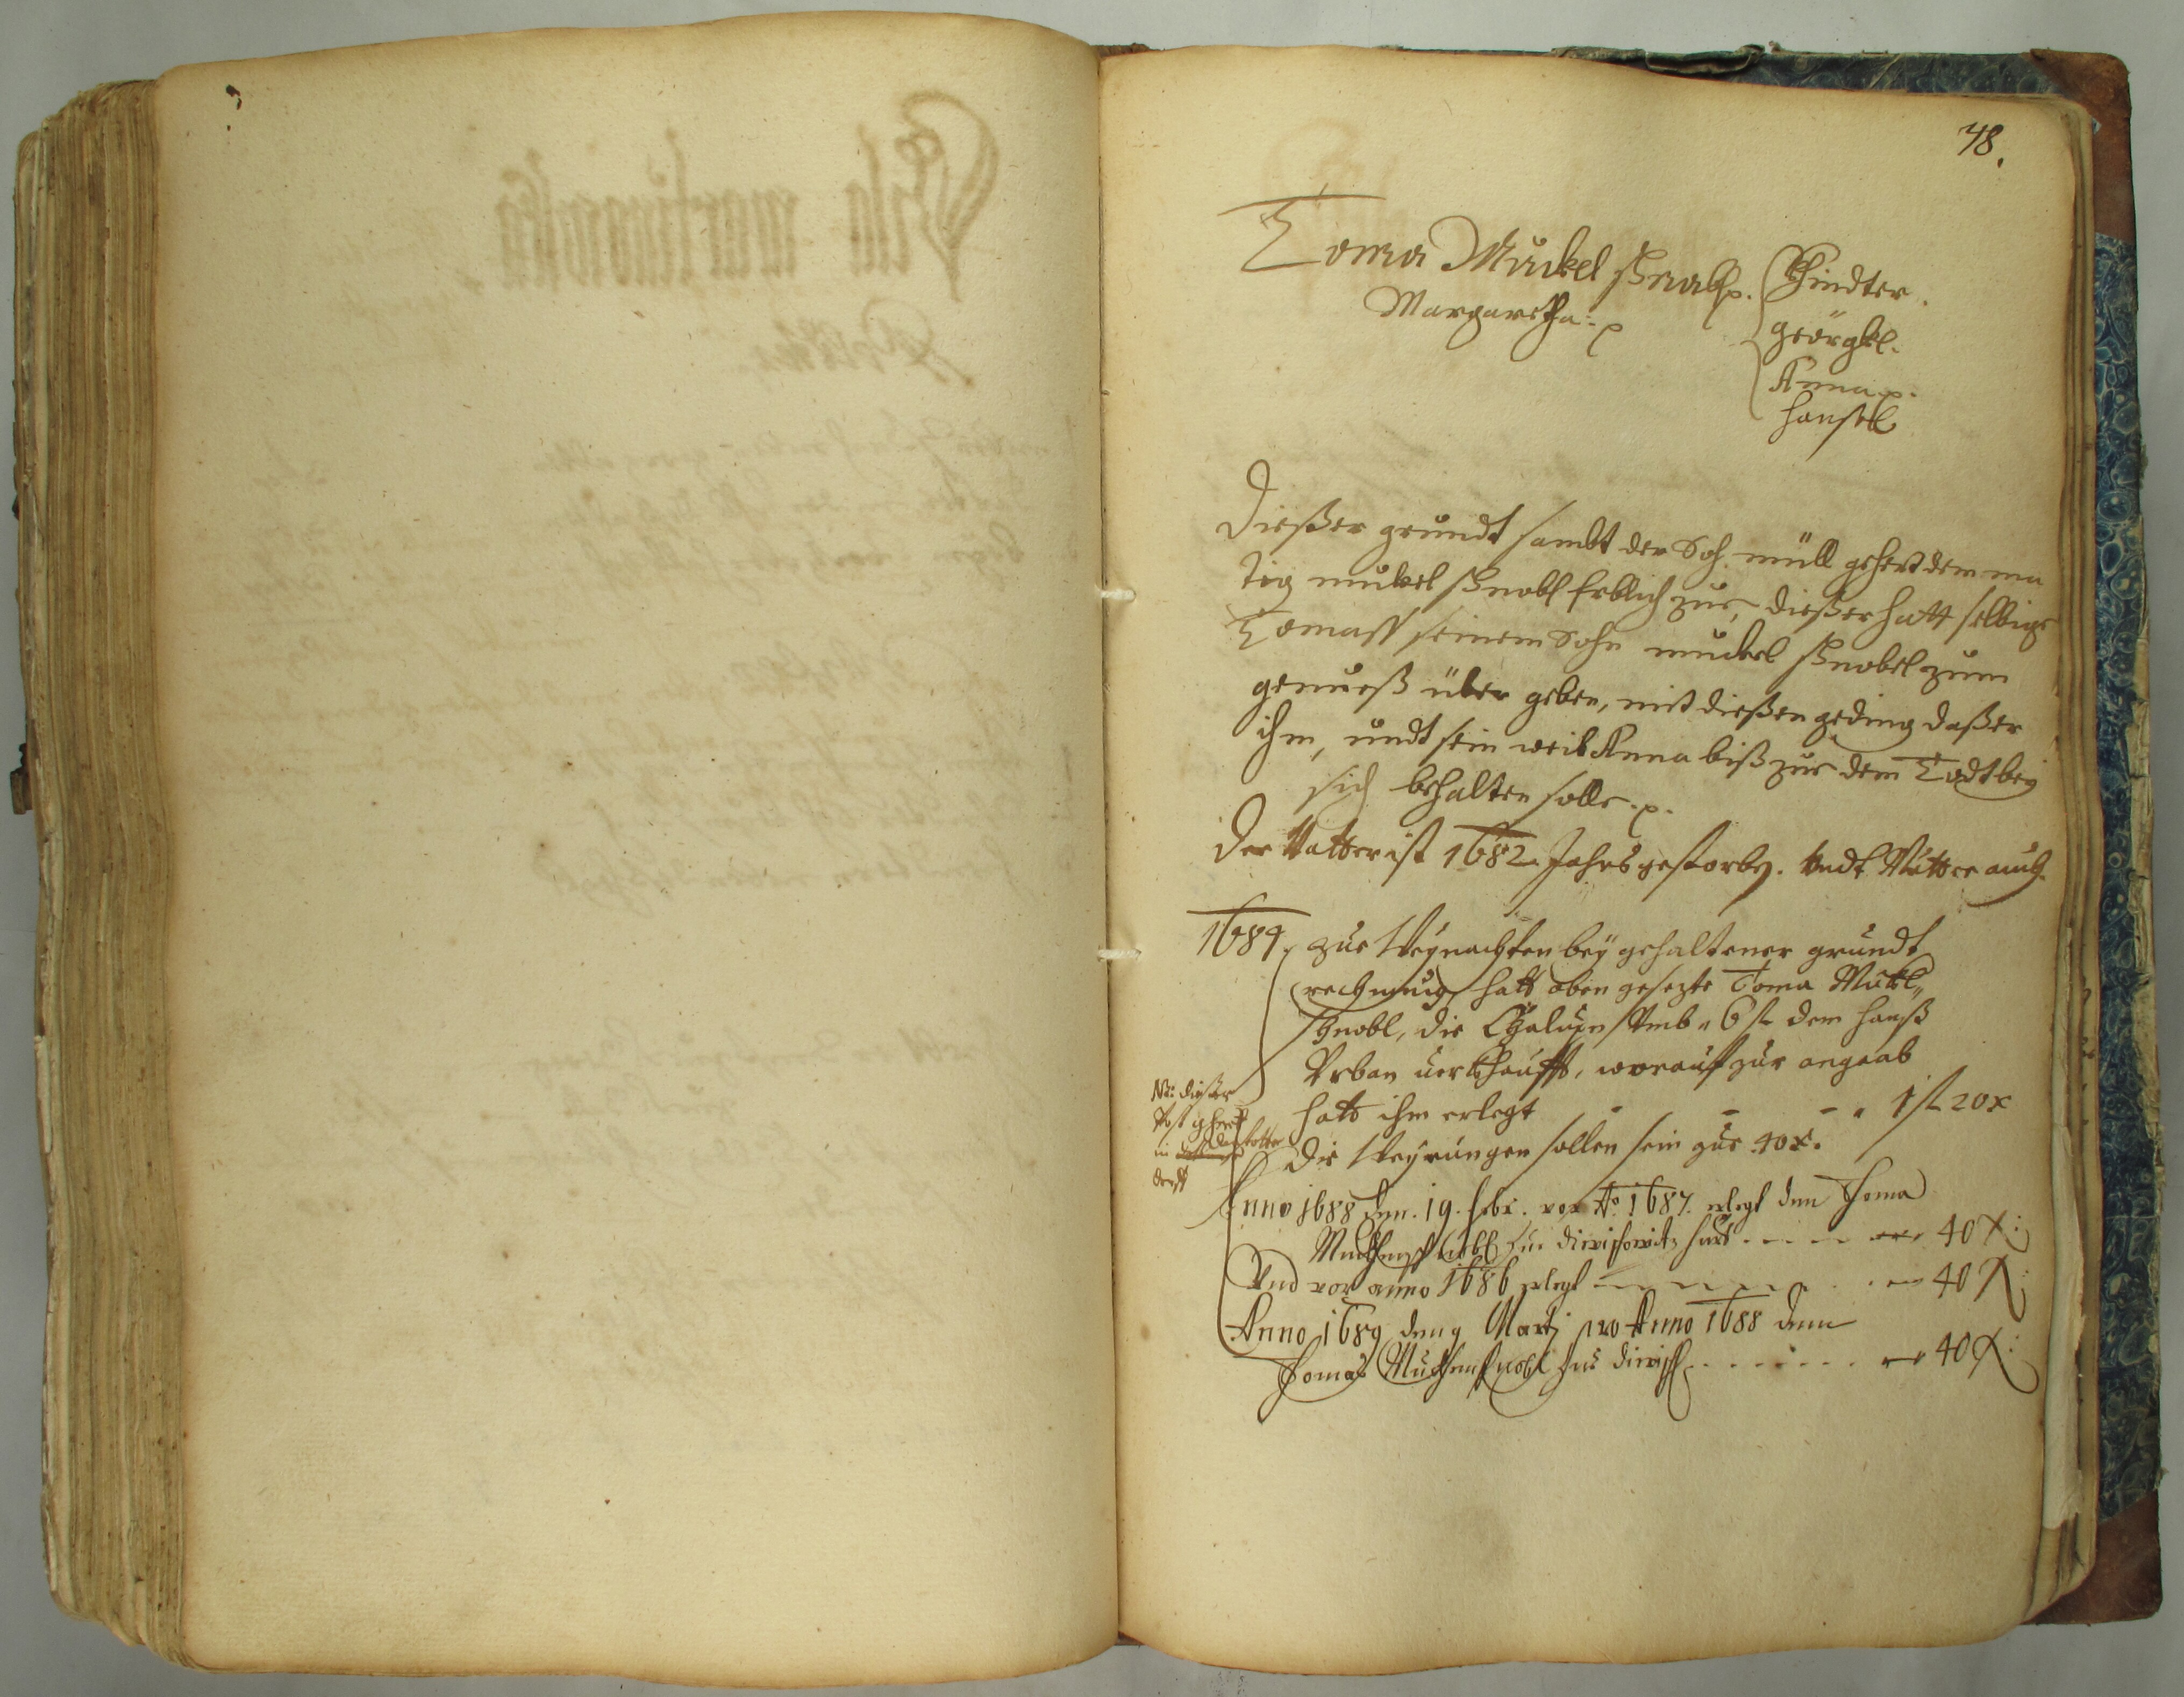 48.
Toma Muckel Knobl. Khindter.
Margaretha. Geörgkl.
Anna.
Hansel
Dießer grundt sambt der Sch. müll gehert dem ma
tig mukel Knobl Erblich zue, dießer hatt selbige
Tomaß seinem Sohn muckel Knobel zum
genueß über geben, mit dießen geding daßer
ihm, undt sein weib Anna biß zue dem Todt bey
sich behalten solle.
Der Vatter ist 1682 Jahrs gestorben. Undt Mutter auch.
1684. zue Weynachten bey gehaltener grundt
rechnung hatt oben gesezte Toma Mukl
Knobl, die Chalupn Umb 6 fl dem Hanß
Urban verkhaufft, worauf zur angaab
hatt ihm erlegt - - - 1 fl 20 x
Die Weyrungen sollen sein zue 40 x.
NB: dießer
Post ghert
in
Anno 1688 den 19. Febr. vor Ao. 1687. erlegt dem Thoma
zue diwischowitz - - - 40 X:
Und vor anno 1686 erlegt - - - 40 X:
Anno 1689 den 9 Marti pro Anno 1688 dem
Thomas zue diwisch - - - 40 X: